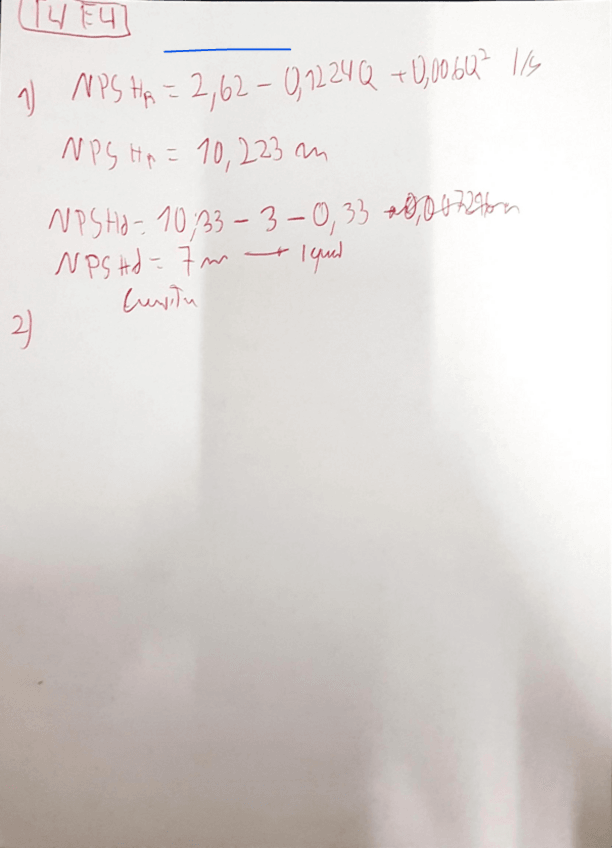 T4 E4
1) NPSHR = 2,62 - 0,1224Q + 0,006Q² l/s
NPSHR = 10,223 m
NPSHd = 10,33 - 3 - 0,33
NPSHd = 7 m → igual
2)